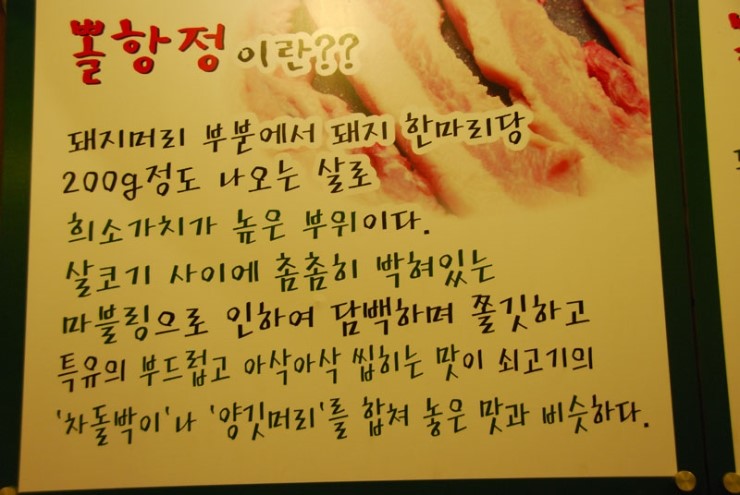 뽈항정이란??
돼지머리 부분에서 돼지 한마리당
200g정도 나오는 살로
희소가치가 높은 부위이다.
살코기 사이에 촘촘히 박혀있는
마블링으로 인하여 담백하며 쫄깃하고
특유의 부드럽고 아삭아삭 씹히는 맛이 쇠고기의
'차돌박이'나 '양깃머리'를 합쳐 놓은 맛과 비슷하다.